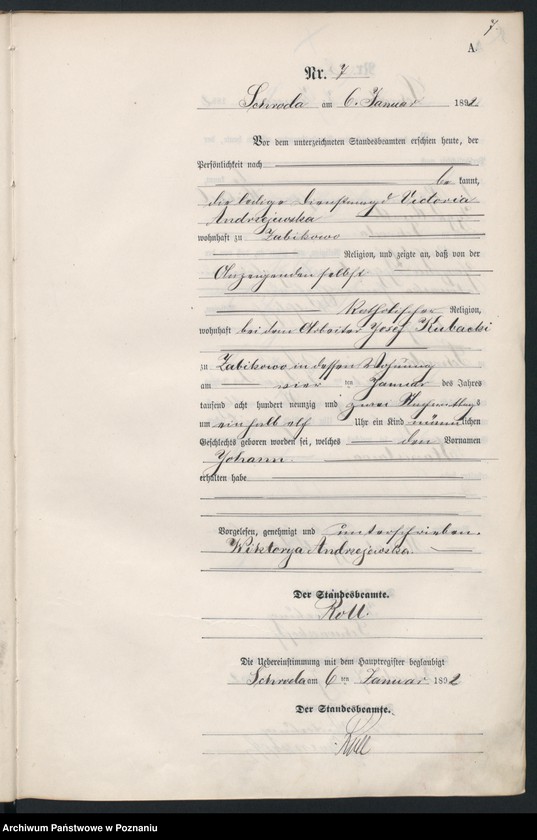 7
A
Nr. 7
Schroda am 6. Januar 1892
Vor dem unterzeichneten Standesbeamten erschien heute, der
Persönlichkeit nach
be kannt,
die ledige Dienstmagd Victoria
Andrzejewska
wohnhaft zu Zabikowo
Religion, und zeigte an, daß von der
Anzeigenden selbst
Katholischer Religion,
wohnhaft bei dem Arbeiter Josef Kubacki
zu Zabikowo in dessen Wohnung
am vier ten Januar des Jahres
tausend acht hundert neunzig und zwei Nachmittags
um ein halb elf Uhr ein Kind männlichen
Geschlechts geboren worden sei, welches den Vornamen
Johann
erhalten habe
Vorgelesen, genehmigt und unterschrieben.
Wiktorya Andrzejewska.
Der Standesbeamte.
Roll.
Die Uebereinstimmung mit dem Hauptregister beglaubigt
Schroda am 6 ten Januar 1892
Der Standesbeamte.
Roll
Archiwum Państwowe w Poznaniu